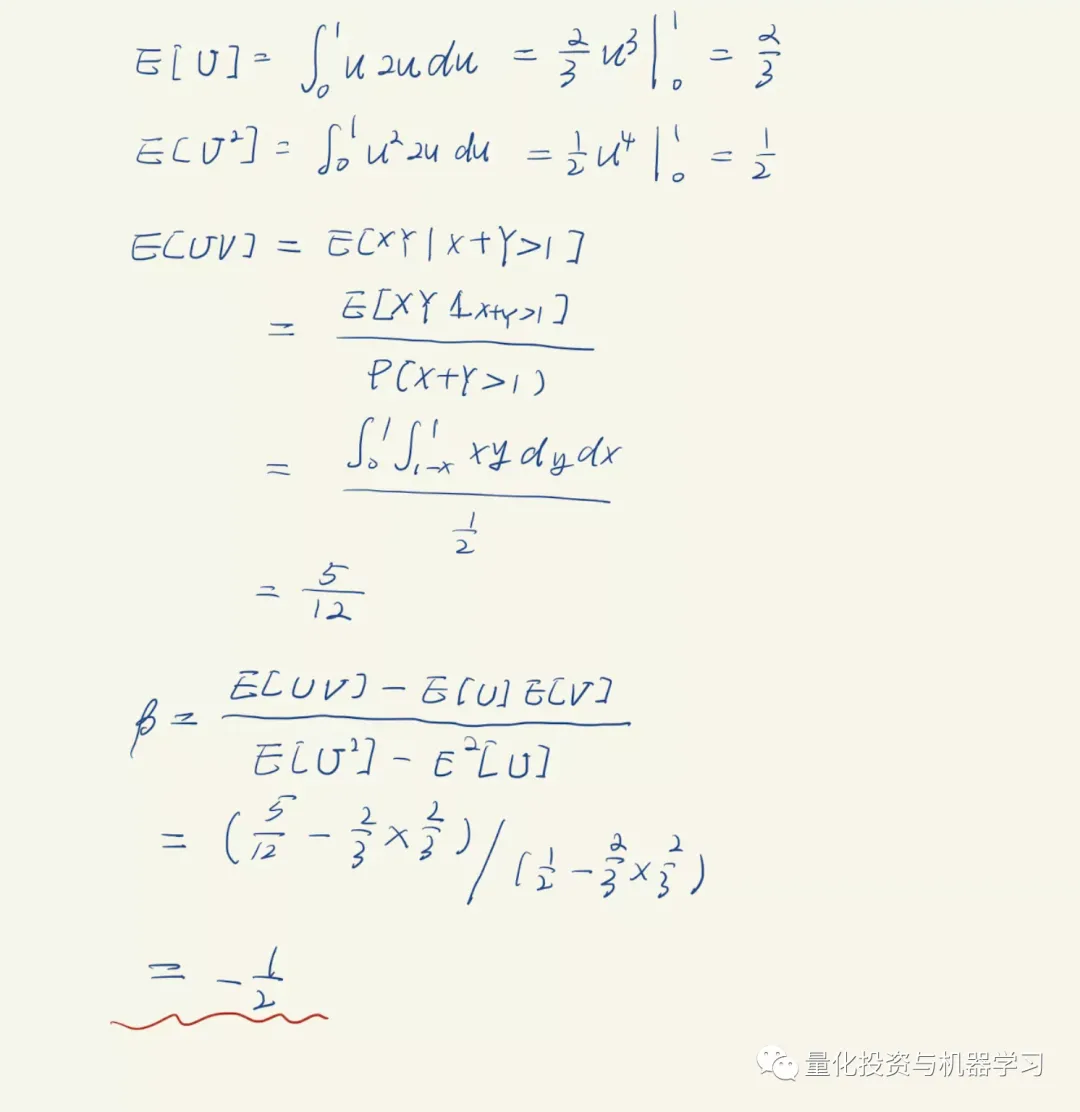 E[U] = ∫₀¹ u 2u du = 2/3 u³ |₀¹ = 2/3
E[U²] = ∫₀¹ u² 2u du = 1/2 u⁴ |₀¹ = 1/2
E[UV] = E[XY | X+Y>1]
= E[XY 1_{X+Y>1}] / P(X+Y>1)
= ∫₀¹ ∫₁₋ₓ¹ xy dy dx / (1/2)
= 5/12
β = (E[UV] - E[U] E[V]) / (E[U²] - E²[U])
= (5/12 - 2/3 × 2/3) / (1/2 - 2/3 × 2/3)
= - 1/2
量化投资与机器学习